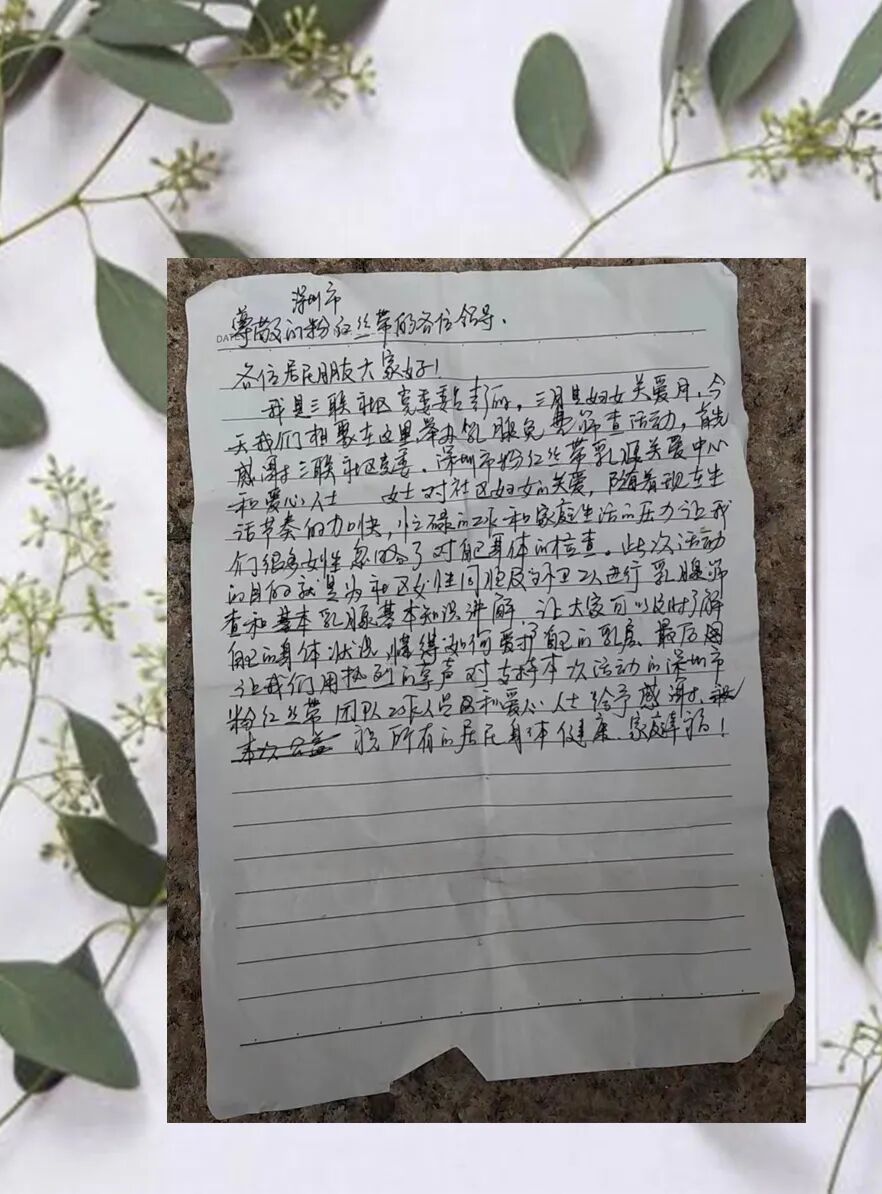 深圳市
尊敬的粉红丝带的各位领导.
DATE
各位居民朋友大家好!
我是三联社区党委委员。三月是妇女关爱月,今
天我们相聚在这里举办乳腺免费筛查活动,首先
感谢三联社区党委、深圳市粉红丝带乳腺关爱中心
和爱心人士 女士对社区妇女的关爱,随着现在生
活节奏的加快,忙碌的工作和家庭生活的压力让我
们很多女性忽略了对自己身体的检查。此次活动
的目的就是为社区女性同胞及环卫工人进行乳腺筛
查和基本乳腺基本知识讲解,让大家可以及时了解
自己的身体状况,懂得如何爱护自己的乳房。最后
让我们用热烈的掌声对支持本次活动的深圳市
粉红丝带团队工作人员和爱心人士给予感谢,
本次公益 祝所有的居民身体健康、家庭幸福!